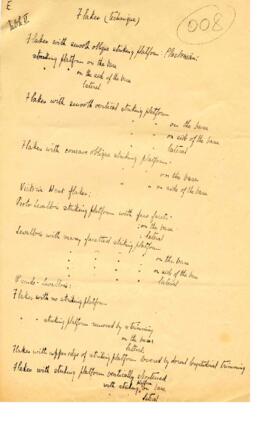 E
008
Flakes (Technique)
Flakes with smooth oblique striking platform:
striking platform on the base
" on the side of the base
lateral
Flakes with smooth vertical striking platform
" on the base
" on side of the base
" lateral
Flakes with concave oblique striking platform
" on the base
" on side of the base
Victoria West flakes:
Proto Levallois striking platform with few facets
" on the base
" lateral
Levallois with many facetted striking platform
" on the base
" on side of the base
" lateral
Pseudo-Levallois:
Flakes with no striking platform
" striking platform removed by trimming
on the base
lateral
Flakes with upper edge of striking platform by dorsal longitudinal trimming
Flakes with striking platform vertically
with striking platform on base
" lateral